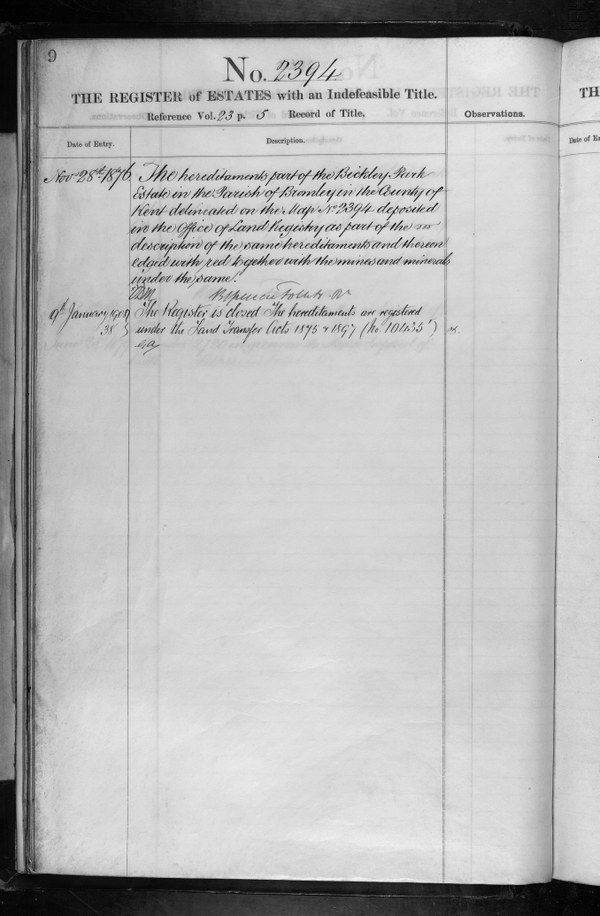 9
No. 2394
THE REGISTER of ESTATES with an Indefeasible Title.
Reference Vol. 23 p. 5 Record of Title.
Observations.
Date of Entry.
Description.
Nov 28th 1876. The hereditaments part of the Bickley Park
Estate in the Parish of Bromley in the County of
Kent delineated on the Map No 2394 deposited
in the Office of Land Registry as part of the
description of the same hereditaments and thereon
edged with red together with the mines and minerals
under the same.
9th January
38
The Register is closed The hereditaments are registered
under the Land Transfer Acts 1875 & 1897 (No
TH
Date of E